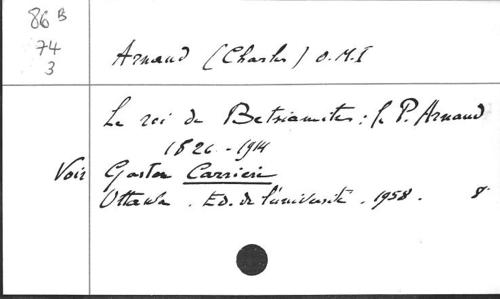 86 B
74
3
Arnaud (Charles) O.M.I
Le roi de Betsiamites : le P. Arnaud
1826 - 1914
Voir Gaston Carrière
Ottawa . Ed. de l'université . 1958 . 8°